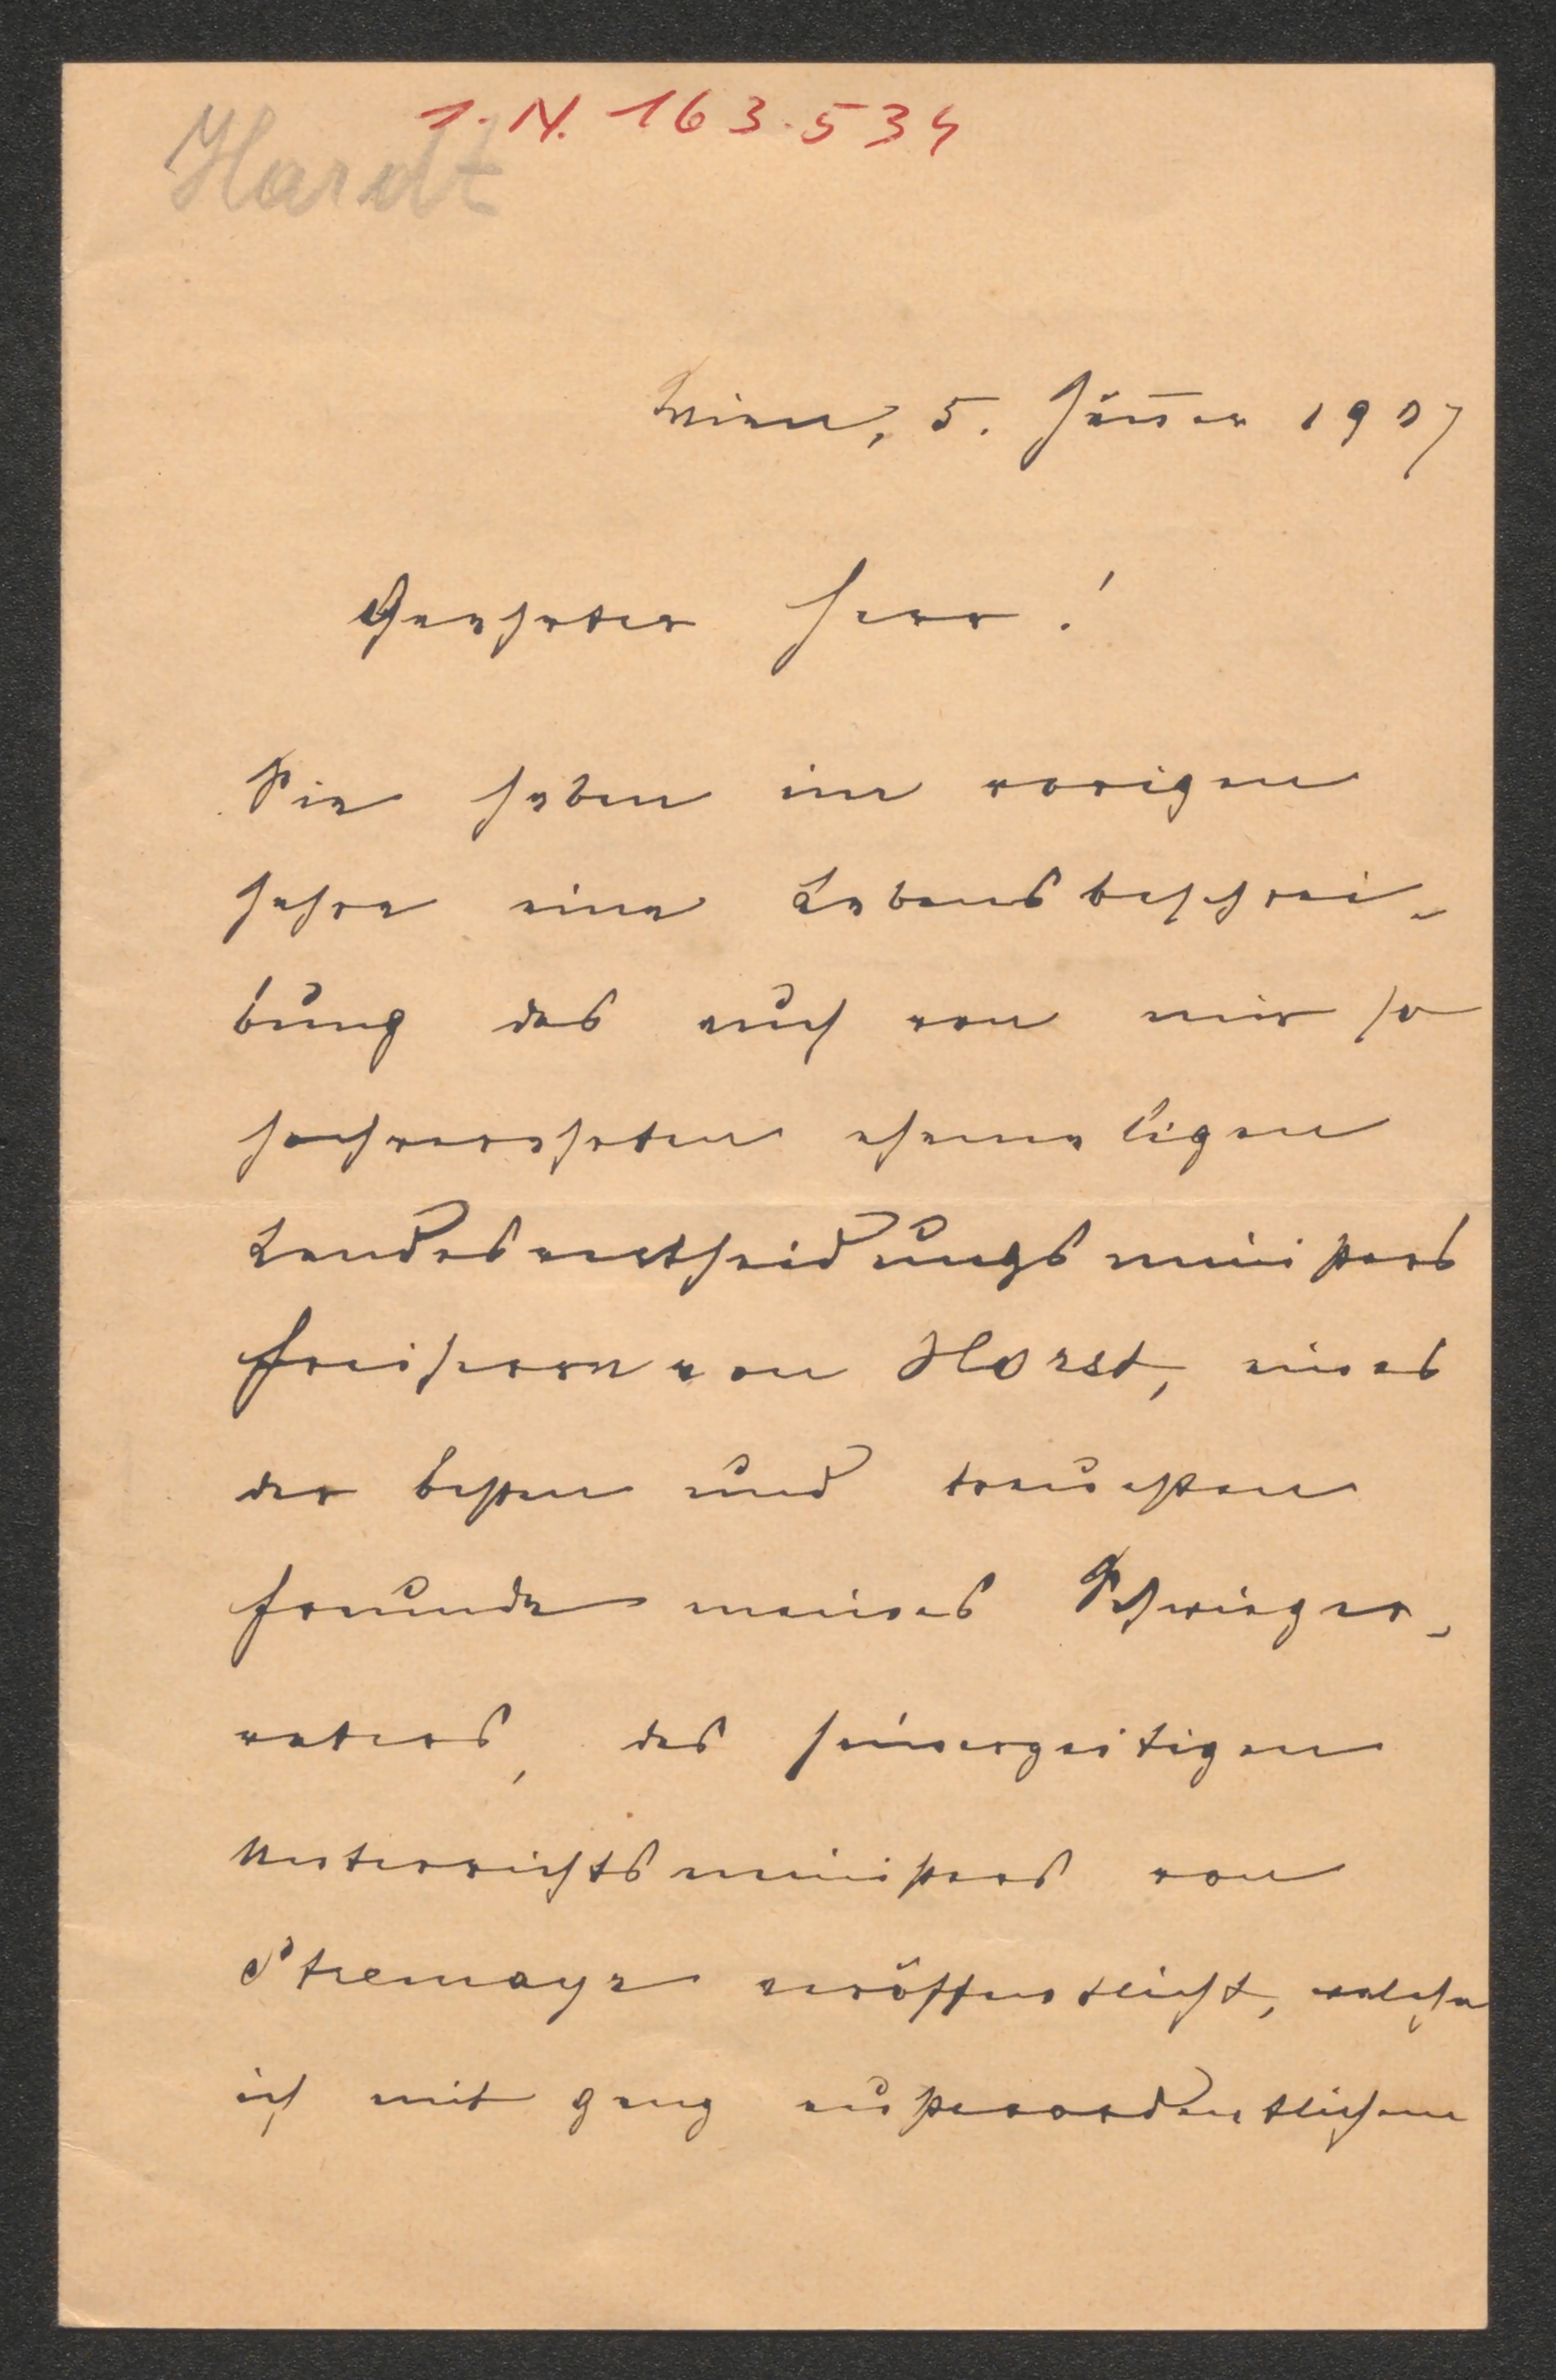 I. N. 163.534
Hardt
Wien, 5. Jänner 1907
Geehrter Herr!
Sie haben im vorigen
Jahre eine Lebensbeschrei-
bung des auch von mir so
hochverehrten ehemaligen
Landesvertheidigungsministers
Freiherrn von Horst, eines
der besten und treuesten
Freunde meines Schwieger-
vaters, des seinerzeitigen
Unterrichtsministers von
Stremayr veröffentlicht, welche
ich mit ganz außerordentlichem